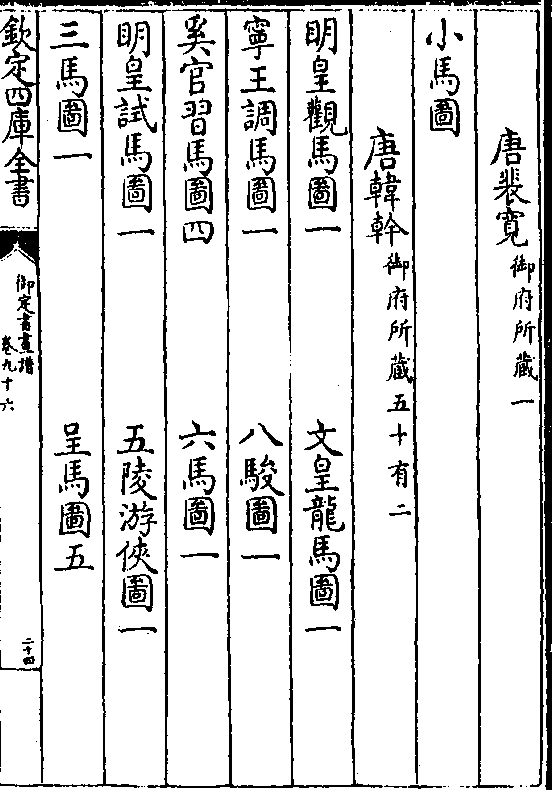 唐裴寛御府所藏一
小馬圖
唐韓幹御府所藏五十有二
明皇觀馬圖一　文皇龍馬圖一
寧王調馬圖一　八駿圖一
奚官習馬圖四　六馬圖一
明皇試馬圖一　五陵游俠圖一
三馬圖一　呈馬圖五
欽定四庫全書
御定書畫譜
卷九十六
二十四